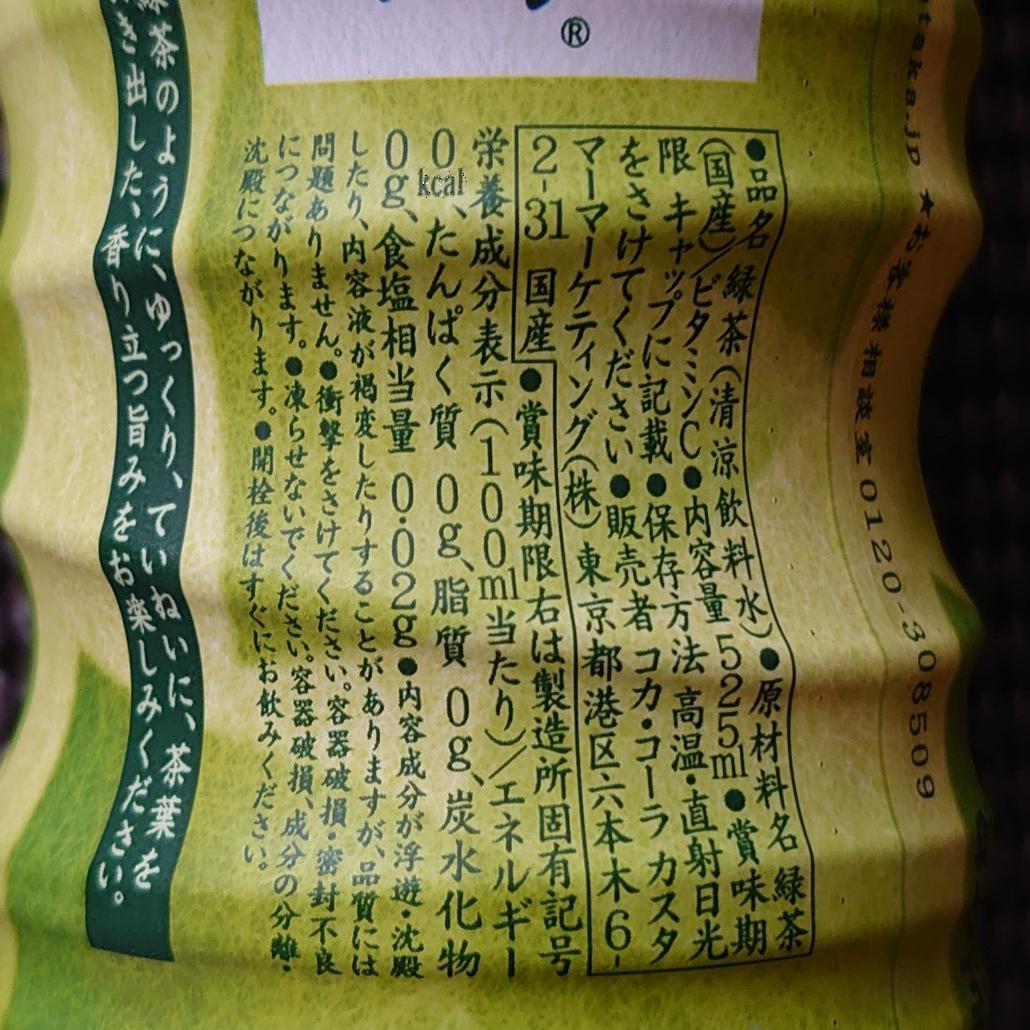 ®
taka.jp ★お客様相談室 0120-308509
●品名 緑茶(清涼飲料水)●原材料名 緑茶
(国産)/ビタミンC●内容量 525ml●賞味期
限 キャップに記載●保存方法 高温・直射日光
をさけてください●販売者 コカ・コーラ カスタ
マーマーケティング(株) 東京都港区六本木6-
2-31 国産 ●賞味期限右は製造所固有記号
栄養成分表示(100ml当たり)/エネルギー
0kcal、たんぱく質 0g、脂質 0g、炭水化物
0g、食塩相当量 0.02g●内容成分が浮遊・沈殿
したり、内容液が褐変したりすることがありますが、品質には
問題ありません。●衝撃をさけてください。容器破損・密封不良
につながります。●凍らせないでください。容器破損、成分の分離・
沈殿につながります。●開栓後はすぐにお飲みください。
緑茶のように、ゆっくり、ていねいに、茶葉を
き出した、香り立つ旨みをお楽しみください。